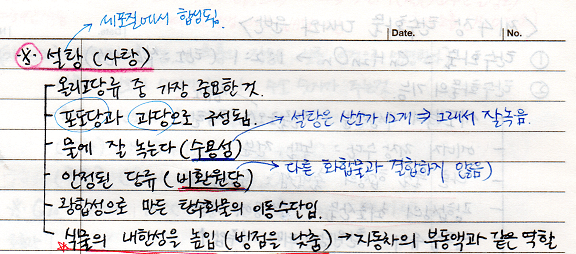 세포질에서 합성됨.
Date. No.
※. 설탕 (사탕)
- 올리고당류 중 가장 중요한 것.
- 포도당과 과당으로 구성됨. → 설탕은 산소가 12개 ⇒ 그래서 잘녹음.
- 물에 잘 녹는다 (수용성)
- 안정된 당류 (비환원당) → 다른 화합물과 결합하지 않음)
- 광합성으로 만든 탄수화물의 이동수단임.
- 식물의 내한성을 높임 (빙점을 낮춤) → 자동차의 부동액과 같은 역할